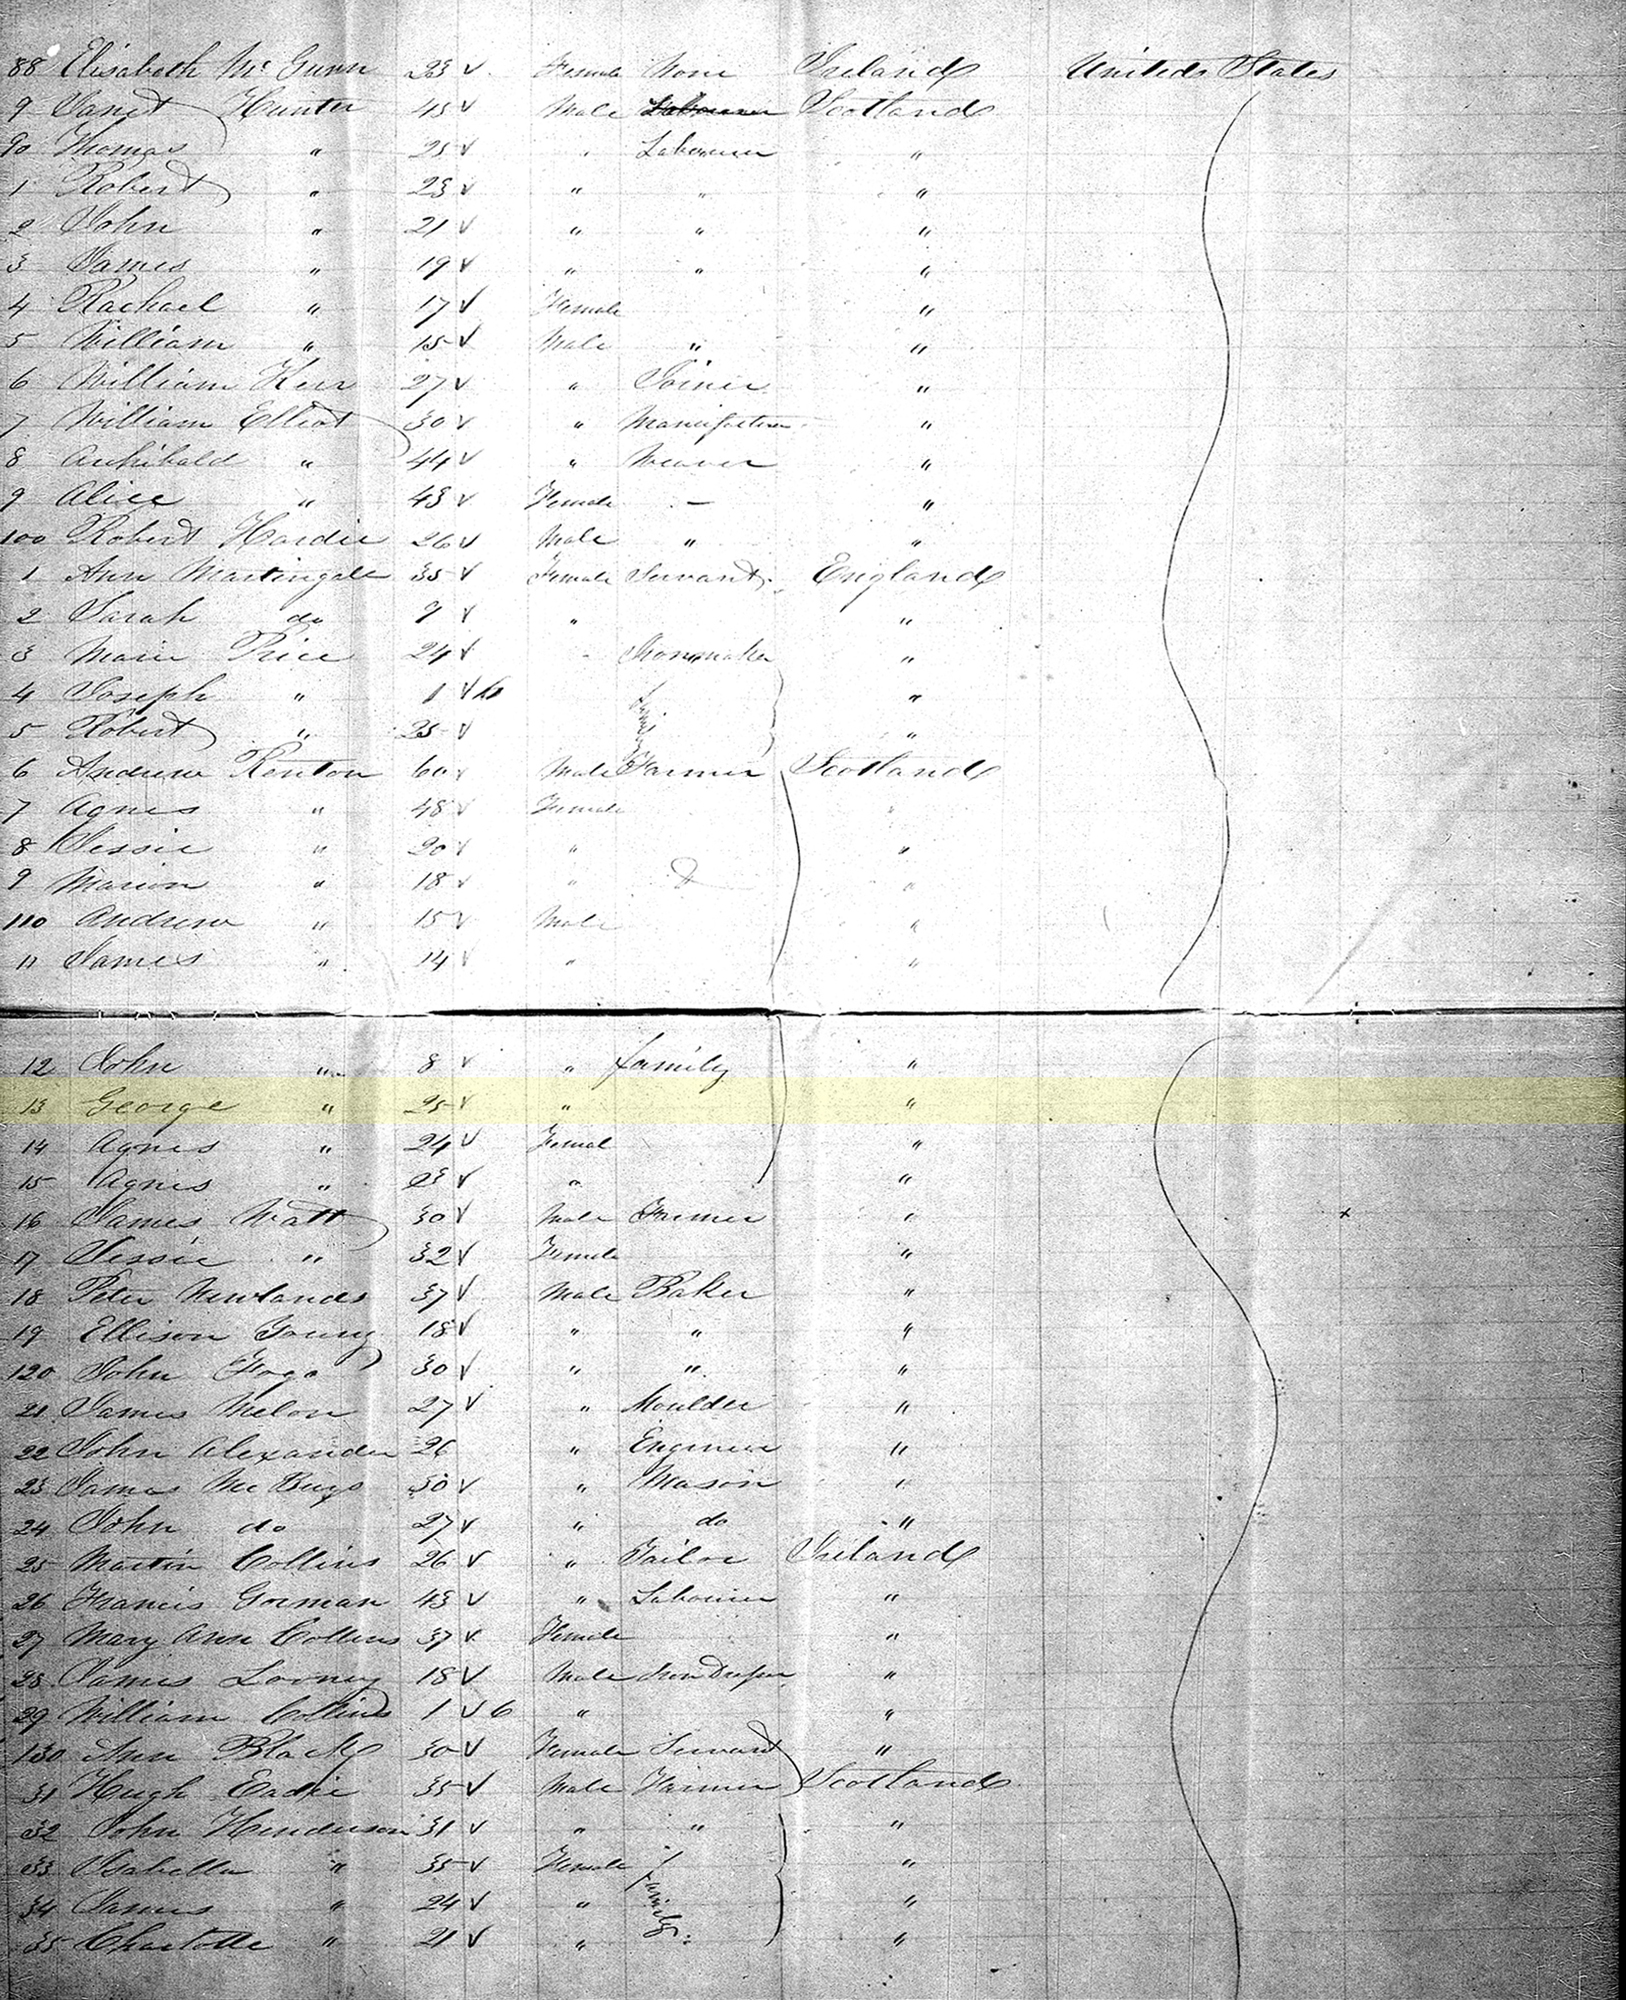 88 Elisabeth McGunn 23 v Female None Ireland United States
9 Janet Hunter 45 v Male Labourer Scotland
90 Thomas " 25 v " Labourer "
1 Robert " 23 v " " "
2 John " 21 v " " "
3 James " 19 v " " "
4 Rachael " 17 v Female "
5 William " 15 v Male " "
6 William Kerr 27 v " Joiner "
7 William Elliot 30 v " Manufacturer "
8 Archibald " 44 v " Weaver "
9 Alice " 43 v Female - "
100 Robert Hardie 26 v Male " "
1 Ann Martingale 35 v Female Servant England
2 Sarah do 9 v " "
3 Marie Price 24 v " "
4 Joseph " 1 v 6 "
5 Robert " 25 v family "
6 Andrew Renton 60 v Male Farmer Scotland
7 Agnes " 48 v Female "
8 Jessie " 20 v " "
9 Marion " 18 v " "
110 Andrew " 15 v Male "
11 James " 14 v " "
12 John " 8 v " family "
13 George " 25 v " "
14 Agnes " 24 v Femal "
15 Agnes " 23 v " "
16 James Watt 30 v Male Farmer " x
17 Jessie " 32 v Female "
18 Peter Newlands 37 v Male Baker "
19 Ellison Young 18 v " " "
120 John Fogo 30 v " " "
21 James Melon 27 v " Moulder "
22 John Alexander 26 " Engineer "
23 James 30 v " Mason "
24 John do 27 v " do "
25 Martin Collins 26 v " Tailor Ireland
26 Francis Gorman 43 v " Labourer "
27 Mary Ann Collins 37 v Female "
28 James Looney 18 v Male "
29 William Collins 1 v 6 " "
130 Ann Black 30 v Female Servant "
31 Hugh Eadie 35 v Male Farmer Scotland
32 John Henderson 31 v " " "
33 Isabella " 35 v Female family "
34 James " 24 v " "
35 Charlotte " 21 v " "